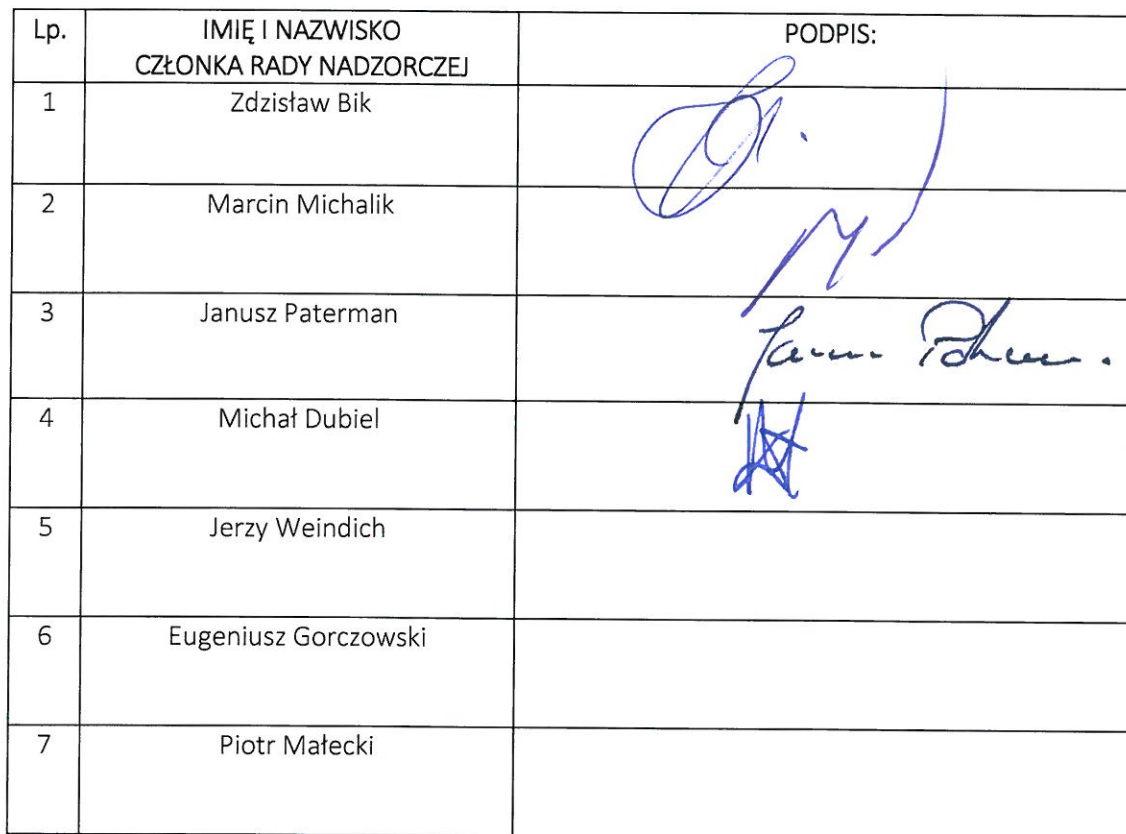 Lp. IMIĘ I NAZWISKO PODPIS:
CZŁONKA RADY NADZORCZEJ
1 Zdzisław Bik
2 Marcin Michalik
3 Janusz Paterman
4 Michał Dubiel
5 Jerzy Weindich
6 Eugeniusz Gorczowski
7 Piotr Małecki